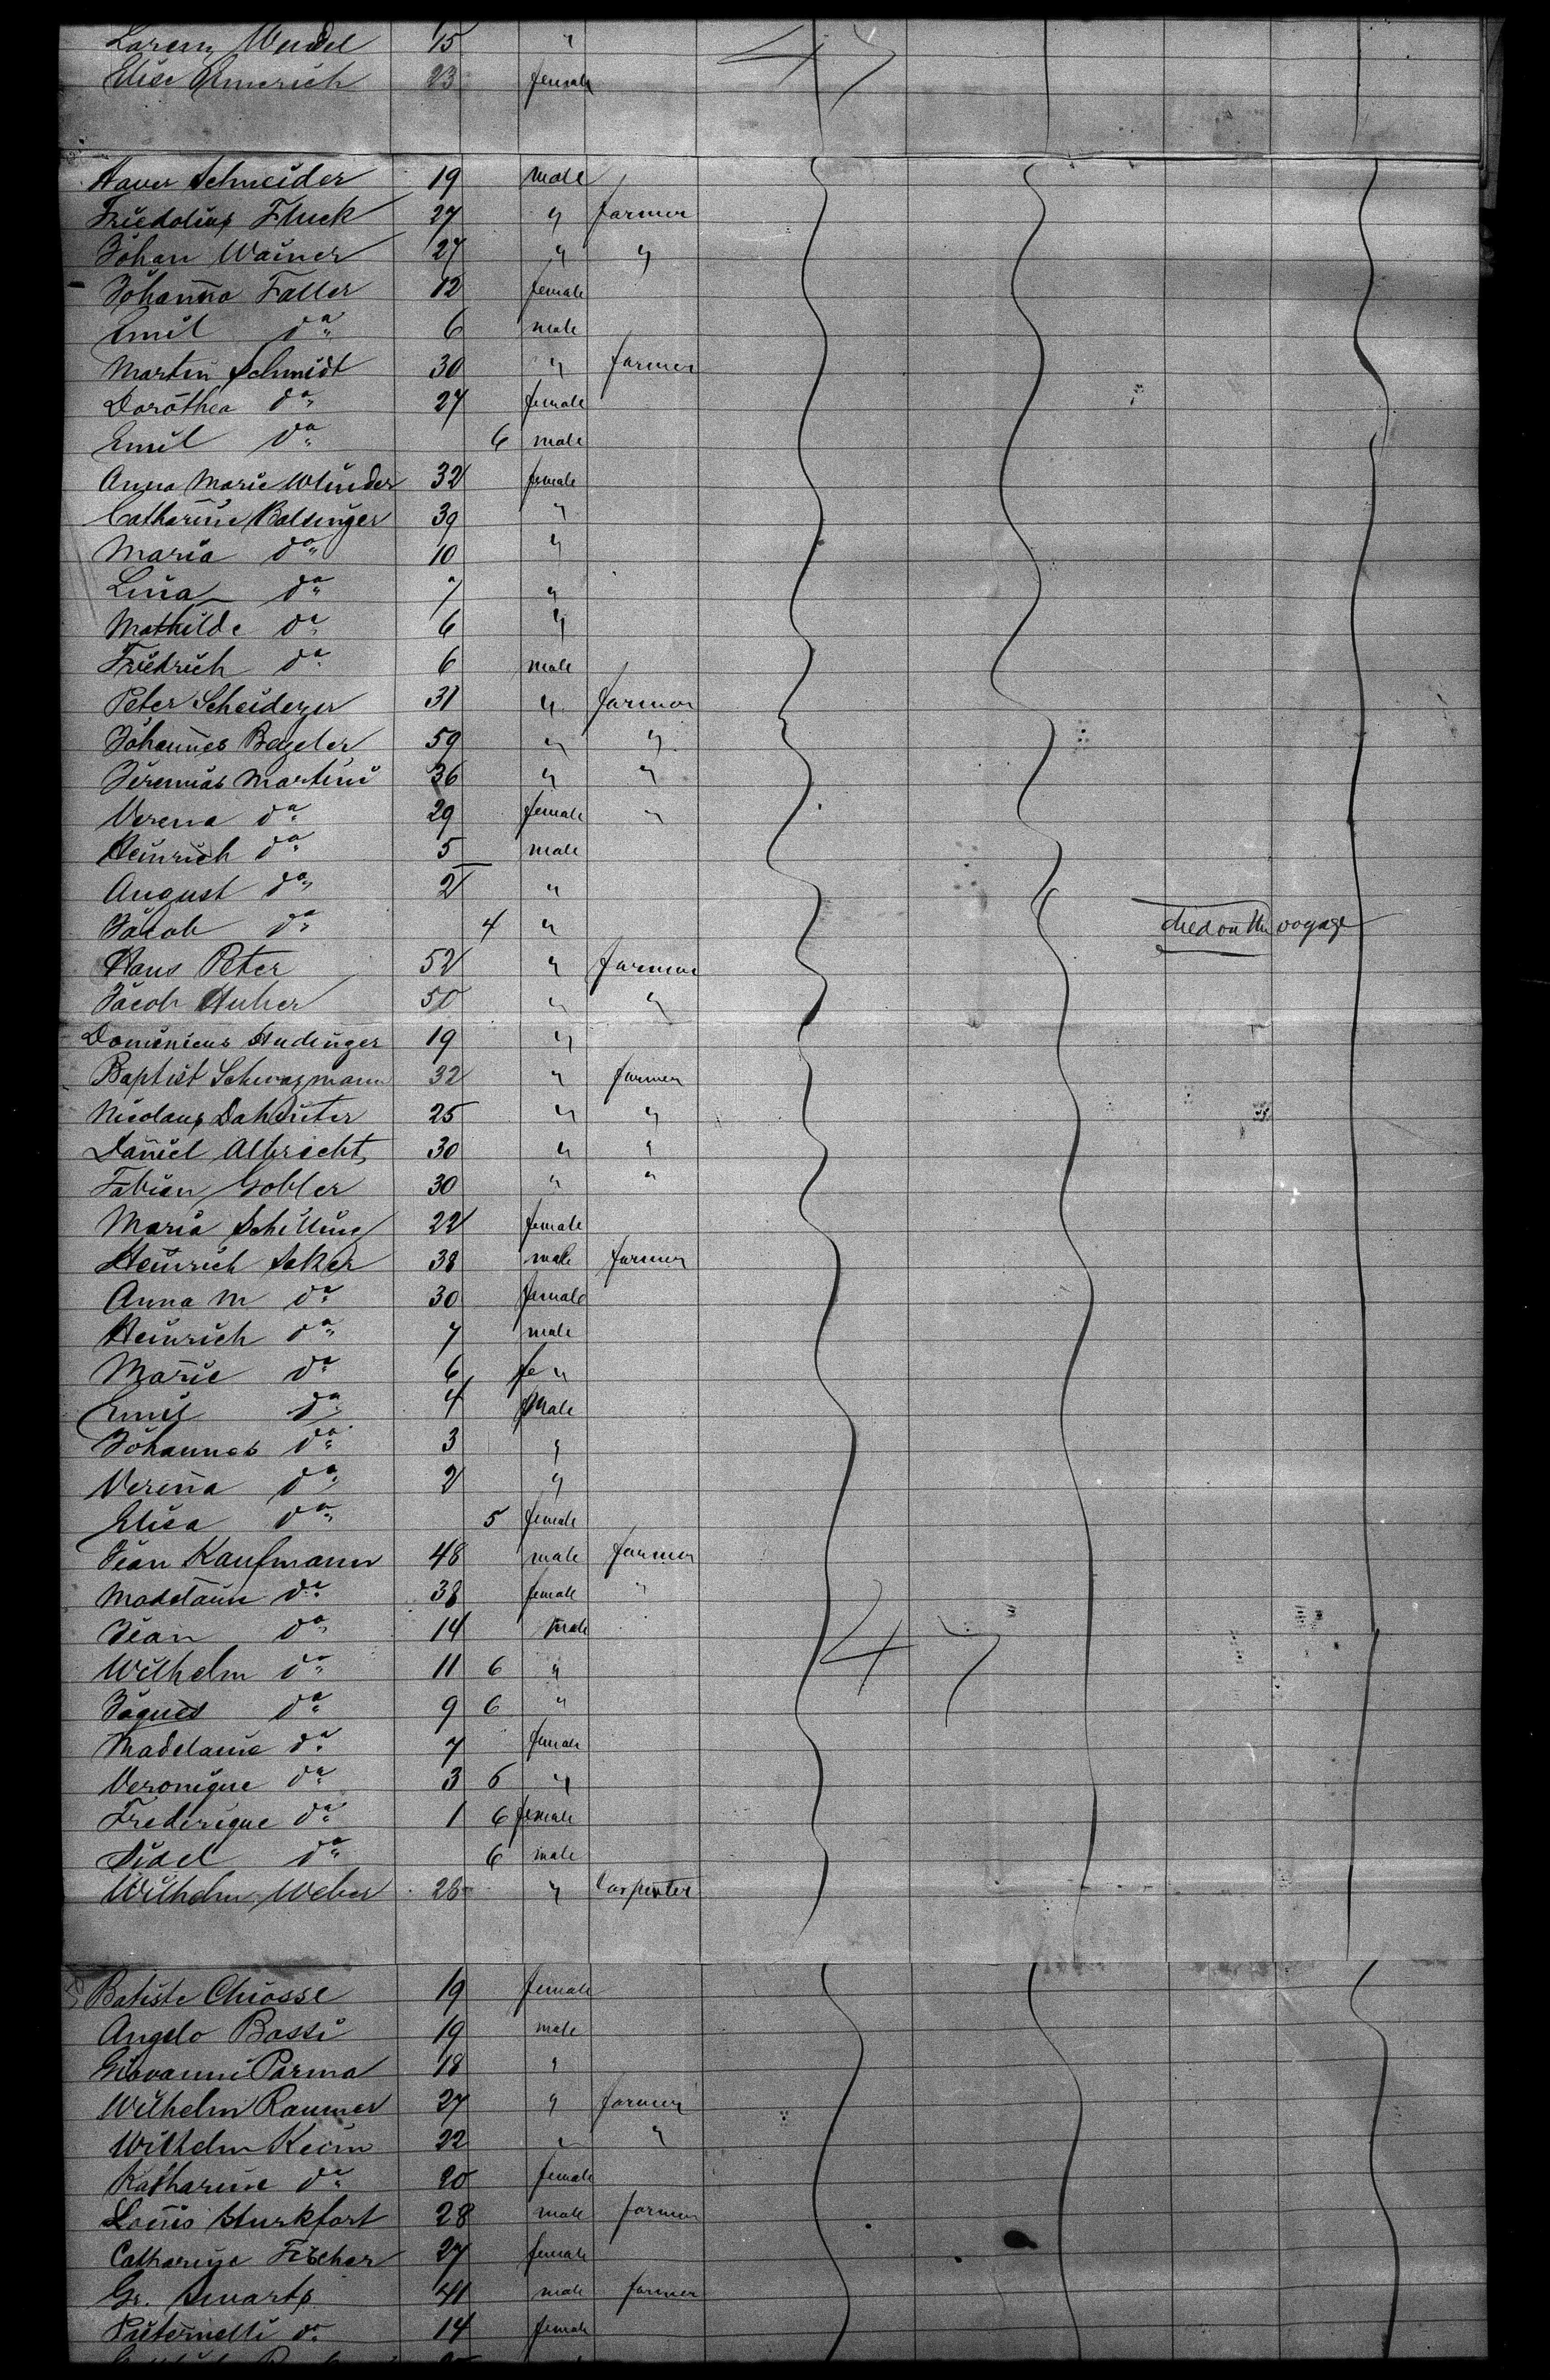 Lorenz Wendel 15 "
Elise Emerich 23 female
47
Xaver Schneider 19 male
Friedolin Fluck 27 " farmer
Johan Wainer 27 " "
Johanna Faller 12 female
Emil do 6 male
Martin Schmidt 30 " farmer
Dorothea do 27 female
Emil do 6 male
Anna Marie 32 female
Catharine Balsinger 39 "
Maria do 10 "
Lina do 7 "
Mathilde do 6 "
Friedrich do 6 male
Peter Scheidezer 31 " farmer
Johannes Bezeler 59 " "
Jeremias Martini 36 " "
Verena do 29 female "
Heinrich do 5 male
August do 2 "
Jacob do 4 " died on the voyage
Hans Peter 52 " farmer
Jacob Huber 50 " "
Domenicus Hudinger 19 "
Baptist Schwazmann 32 " farmer
Nicolaus Daheuter 25 " "
Daniel Albrecht 30 " "
Fabian Gobler 30 " "
Maria Schilling 22 female
Heinrich Seker 38 male farmer
Anna M do 30 female
Heinrich do 7 male
Marie do 6 fe "
Emil do 4 male
Johannes do 3 "
Verena do 2 "
Elisa do 5 female
Jean Kaufmann 48 male farmer
Madelaine do 38 female "
Jean do 14 male
47
Wilhelm do 11 6 "
Jaques do 9 6 "
Madelaine do 7 female
Veronique do 3 6 "
Frederique do 1 6 female
Fidel do 6 male
Wilhelm Weber 28 " Carpenter
Batiste Chiosse 19 female
Angelo Bassi 19 male
Giovanni Parma 18 "
Wilhelm Raumer 27 " farmer
Wilhelm Keim 22 " "
Katharine do 20 female
Louis Hurkfort 28 male farmer
Catharine Fischer 27 female
Gr. Swarts 41 male farmer
Pieternelli do 14 female